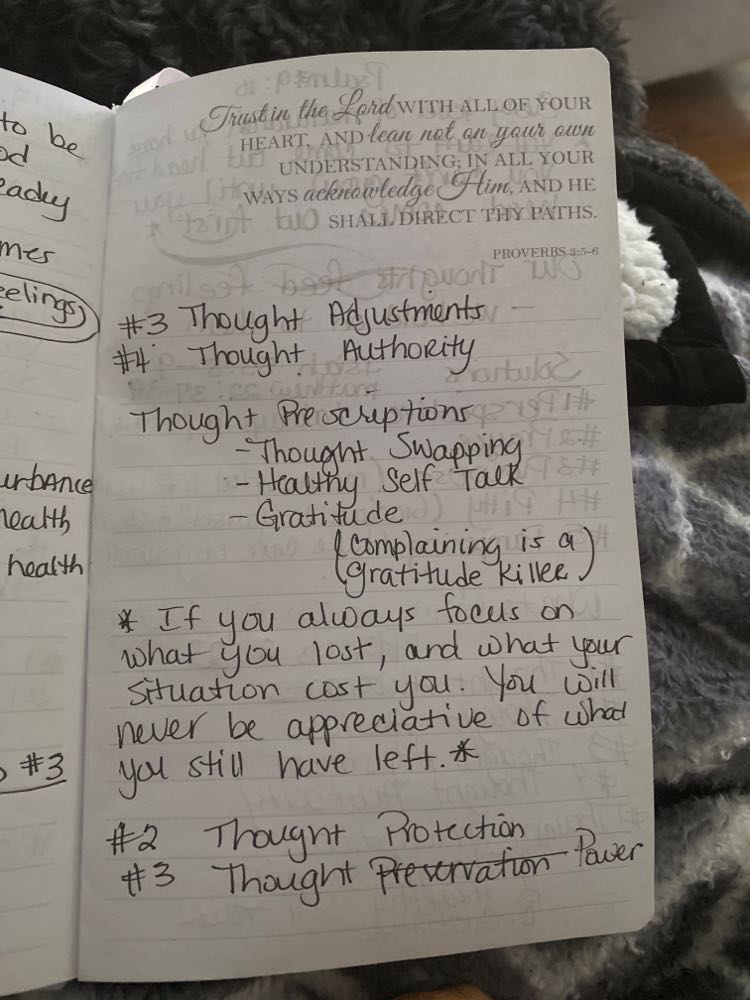 to be
od
eady
mes
eelings
urbance
health
health
#3
Trust in the Lord WITH ALL OF YOUR
HEART, AND lean not on your own
UNDERSTANDING; IN ALL YOUR
WAYS acknowledge Him, AND HE
SHALL DIRECT THY PATHS.
PROVERBS 3:5-6
#3 Thought Adjustments
#4 Thought Authority
Thought Prescriptions
- Thought Swapping
- Healthy Self Talk
- Gratitude
(Complaining is a
gratitude killer)
* If you always focus on
what you lost, and what your
situation cost you. You will
never be appreciative of what
you still have left.*
#2 Thought Protection
#3 Thought Preservation Power